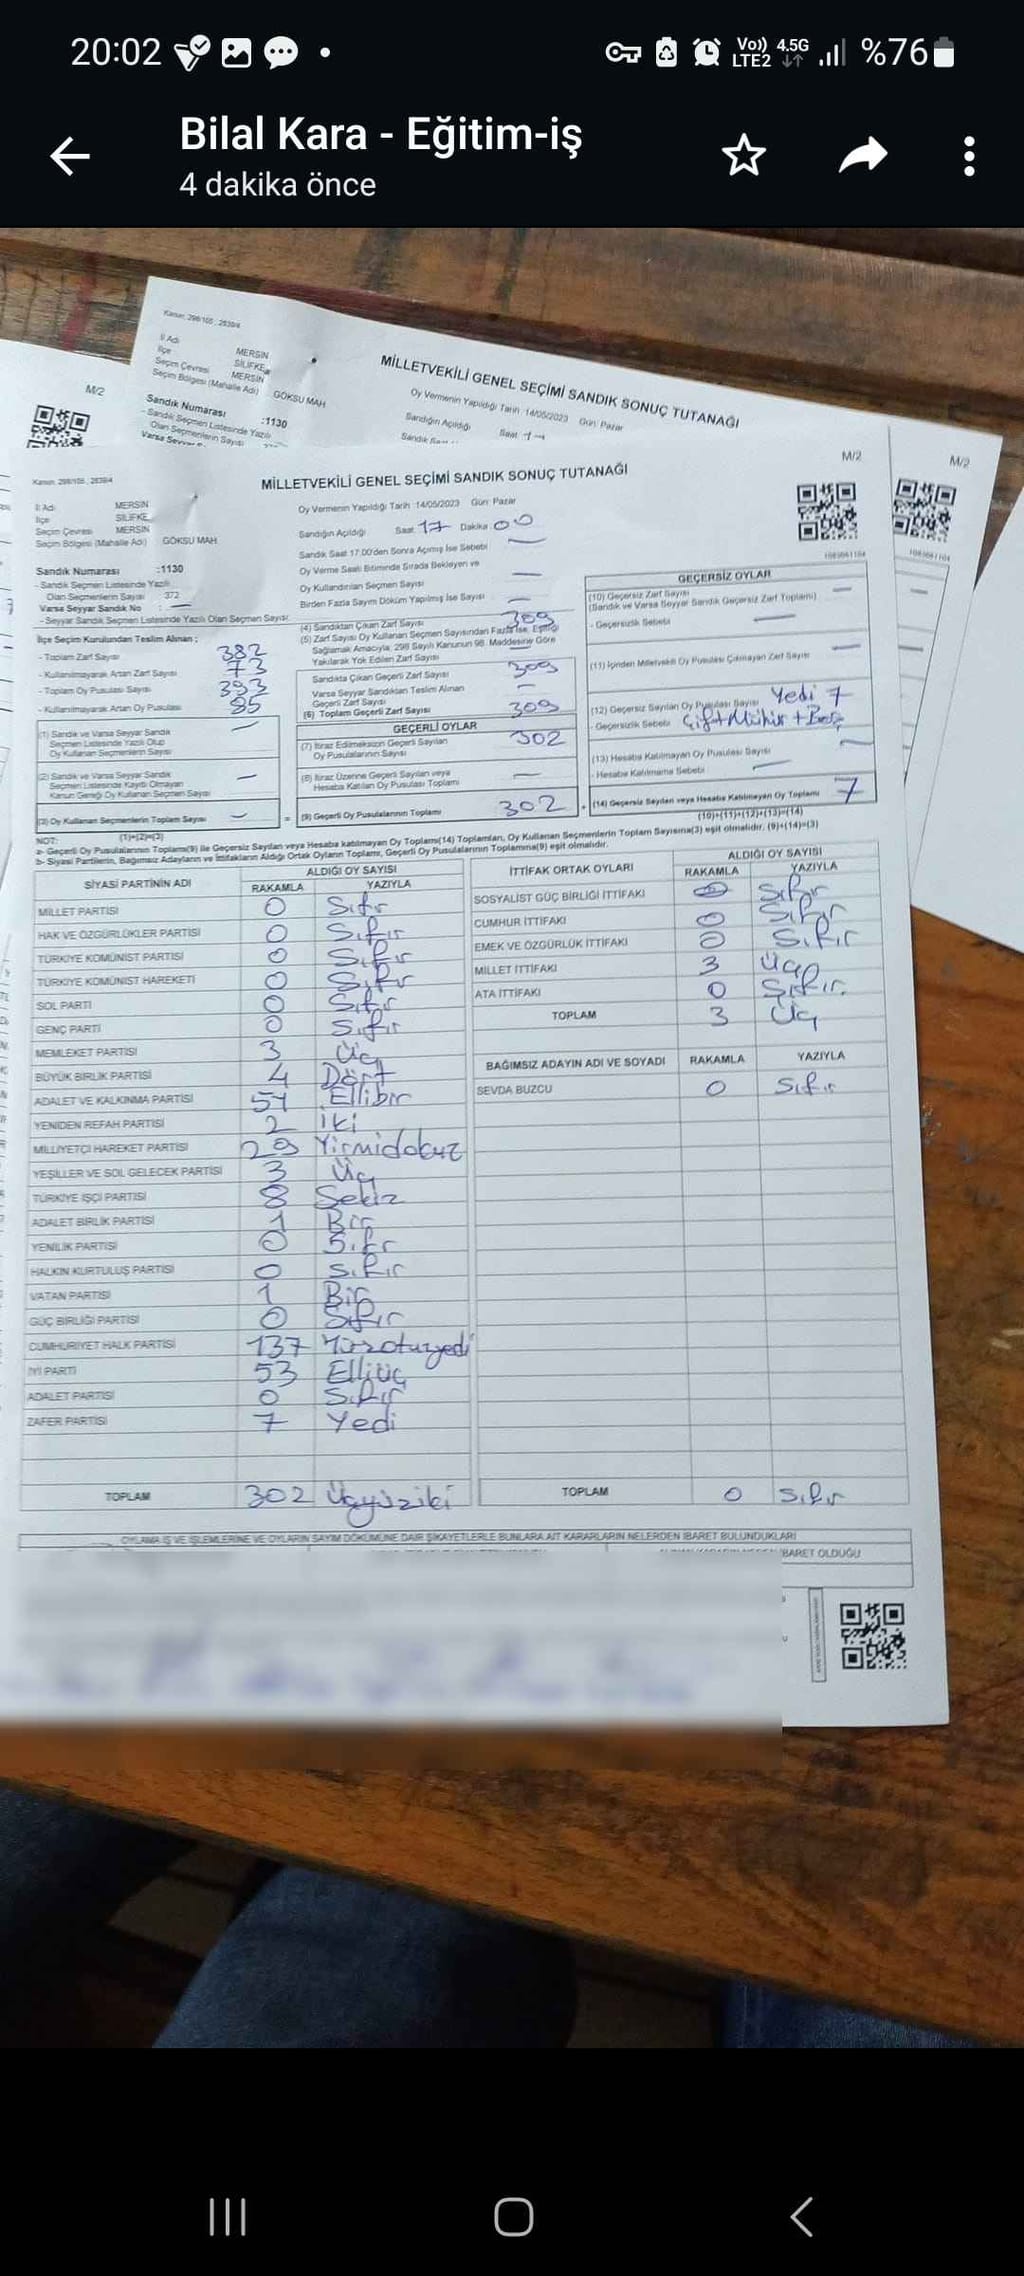 20:02 Vo)) LTE2 4.5G %76
Bilal Kara - Eğitim-iş
4 dakika önce
Kanun, 298/105 , 2839/4
İl Adı MERSİN
İlçe SİLİFKE
Seçim Çevresi MERSİN
Seçim Bölgesi (Mahalle Adı) GÖKSU MAH
Sandık Numarası :1130
- Sandık Seçmen Listesinde Yazılı
Olan Seçmenlerin Sayısı
MİLLETVEKİLİ GENEL SEÇİMİ SANDIK SONUÇ TUTANAĞI
Oy Vermenin Yapıldığı Tarih :14/05/2023 Gün: Pazar
Sandığın Açıldığı Saat
M/2
M/2
M/2
Kanun, 298/105 , 2839/4
MİLLETVEKİLİ GENEL SEÇİMİ SANDIK SONUÇ TUTANAĞI
İl Adı MERSİN
İlçe SİLİFKE
Seçim Çevresi MERSİN
Seçim Bölgesi (Mahalle Adı) GÖKSU MAH
Sandık Numarası :1130
- Sandık Seçmen Listesinde Yazılı
Olan Seçmenlerin Sayısı 372
Varsa Seyyar Sandık No : —
- Seyyar Sandık Seçmen Listesinde Yazılı Olan Seçmen Sayısı:
İlçe Seçim Kurulundan Teslim Alınan ;
- Toplam Zarf Sayısı 382
- Kullanılmayarak Artan Zarf Sayısı 73
- Toplam Oy Pusulası Sayısı 393
- Kullanılmayarak Artan Oy Pusulası 85
(1) Sandık ve Varsa Seyyar Sandık —
Seçmen Listesinde Yazılı Olup
Oy Kullanan Seçmenlerin Sayısı
(2) Sandık ve Varsa Seyyar Sandık —
Seçmen Listesinde Kaydı Olmayan
Kanun Gereği Oy Kullanan Seçmen Sayısı
(3) Oy Kullanan Seçmenlerin Toplam Sayısı —
(1)+(2)=(3)
Oy Vermenin Yapıldığı Tarih :14/05/2023 Gün: Pazar
Sandığın Açıldığı Saat 17 Dakika 00
Sandık Saat 17:00'den Sonra Açılmış İse Sebebi —
Oy Verme Saati Bitiminde Sırada Bekleyen ve
Oy Kullandırılan Seçmen Sayısı —
Birden Fazla Sayım Döküm Yapılmış İse Sayısı —
(4) Sandıktan Çıkan Zarf Sayısı 309
(5) Zarf Sayısı Oy Kullanan Seçmen Sayısından Fazla İse, Eşitliği
Sağlamak Amacıyla, 298 Sayılı Kanunun 98. Maddesine Göre
Yakılarak Yok Edilen Zarf Sayısı —
Sandıkta Çıkan Geçerli Zarf Sayısı 309
Varsa Seyyar Sandıktan Teslim Alınan
Geçerli Zarf Sayısı —
(6) Toplam Geçerli Zarf Sayısı 309
GEÇERLİ OYLAR
(7) İtiraz Edilmeksizin Geçerli Sayılan 302
Oy Pusulalarının Sayısı
(8) İtiraz Üzerine Geçerli Sayılan veya —
Hesaba Katılan Oy Pusulası Toplamı
= (9) Geçerli Oy Pusulalarının Toplamı 302
GEÇERSİZ OYLAR
(10) Geçersiz Zarf Sayısı —
(Sandık ve Varsa Seyyar Sandık Geçersiz Zarf Toplamı)
- Geçersizlik Sebebi —
(11) İçinden Milletvekili Oy Pusulası Çıkmayan Zarf Sayısı —
(12) Geçersiz Sayılan Oy Pusulası Sayısı Yedi 7
- Geçersizlik Sebebi Çift Mühür +
(13) Hesaba Katılmayan Oy Pusulası Sayısı —
- Hesaba Katılmama Sebebi —
+ (14) Geçersiz Sayılan veya Hesaba Katılmayan Oy Toplamı 7
(10)+(11)+(12)+(13)=(14)
NOT:
a- Geçerli Oy Pusulalarının Toplamı(9) ile Geçersiz Sayılan veya Hesaba katılmayan Oy Toplamı(14) Toplamları, Oy Kullanan Seçmenlerin Toplam Sayısına(3) eşit olmalıdır. (9)+(14)=(3)
b- Siyasi Partilerin, Bağımsız Adayların ve İttifakların Aldığı Ortak Oyların Toplamı, Geçerli Oy Pusulalarının Toplamına(9) eşit olmalıdır.
SİYASİ PARTİNİN ADI ALDIĞI OY SAYISI
RAKAMLA YAZIYLA
MİLLET PARTİSİ 0 Sıfır
HAK VE ÖZGÜRLÜKLER PARTİSİ 0 Sıfır
TÜRKİYE KOMÜNİST PARTİSİ 0 Sıfır
TÜRKİYE KOMÜNİST HAREKETİ 0 Sıfır
SOL PARTİ 0 Sıfır
GENÇ PARTİ 0 Sıfır
MEMLEKET PARTİSİ 3 Üç
BÜYÜK BİRLİK PARTİSİ 4 Dört
ADALET VE KALKINMA PARTİSİ 51 Ellibir
YENİDEN REFAH PARTİSİ 2 İki
MİLLİYETÇİ HAREKET PARTİSİ 29 Yirmidokuz
YEŞİLLER VE SOL GELECEK PARTİSİ 3 Üç
TÜRKİYE İŞÇİ PARTİSİ 8 Sekiz
ADALET BİRLİK PARTİSİ 1 Bir
YENİLİK PARTİSİ 0 Sıfır
HALKIN KURTULUŞ PARTİSİ 0 Sıfır
VATAN PARTİSİ 1 Bir
GÜÇ BİRLİĞİ PARTİSİ 0 Sıfır
CUMHURİYET HALK PARTİSİ 137 Yüzotuzyedi
İYİ PARTİ 53 Elliüç
ADALET PARTİSİ 0 Sıfır
ZAFER PARTİSİ 7 Yedi
TOPLAM 302 Üçyüziki
İTTİFAK ORTAK OYLARI ALDIĞI OY SAYISI
RAKAMLA YAZIYLA
SOSYALİST GÜÇ BİRLİĞİ İTTİFAKI 0 Sıfır
CUMHUR İTTİFAKI 0 Sıfır
EMEK VE ÖZGÜRLÜK İTTİFAKI 0 Sıfır
MİLLET İTTİFAKI 3 Üç
ATA İTTİFAKI 0 Sıfır
TOPLAM 3 Üç
BAĞIMSIZ ADAYIN ADI VE SOYADI RAKAMLA YAZIYLA
SEVDA BUZCU 0 Sıfır
TOPLAM 0 Sıfır
OYLAMA İŞ VE İŞLEMLERİNE VE OYLARIN SAYIM DÖKÜMÜNE DAİR ŞİKAYETLERLE BUNLARA AİT KARARLARIN NELERDEN İBARET BULUNDUKLARI
İBARET OLDUĞU